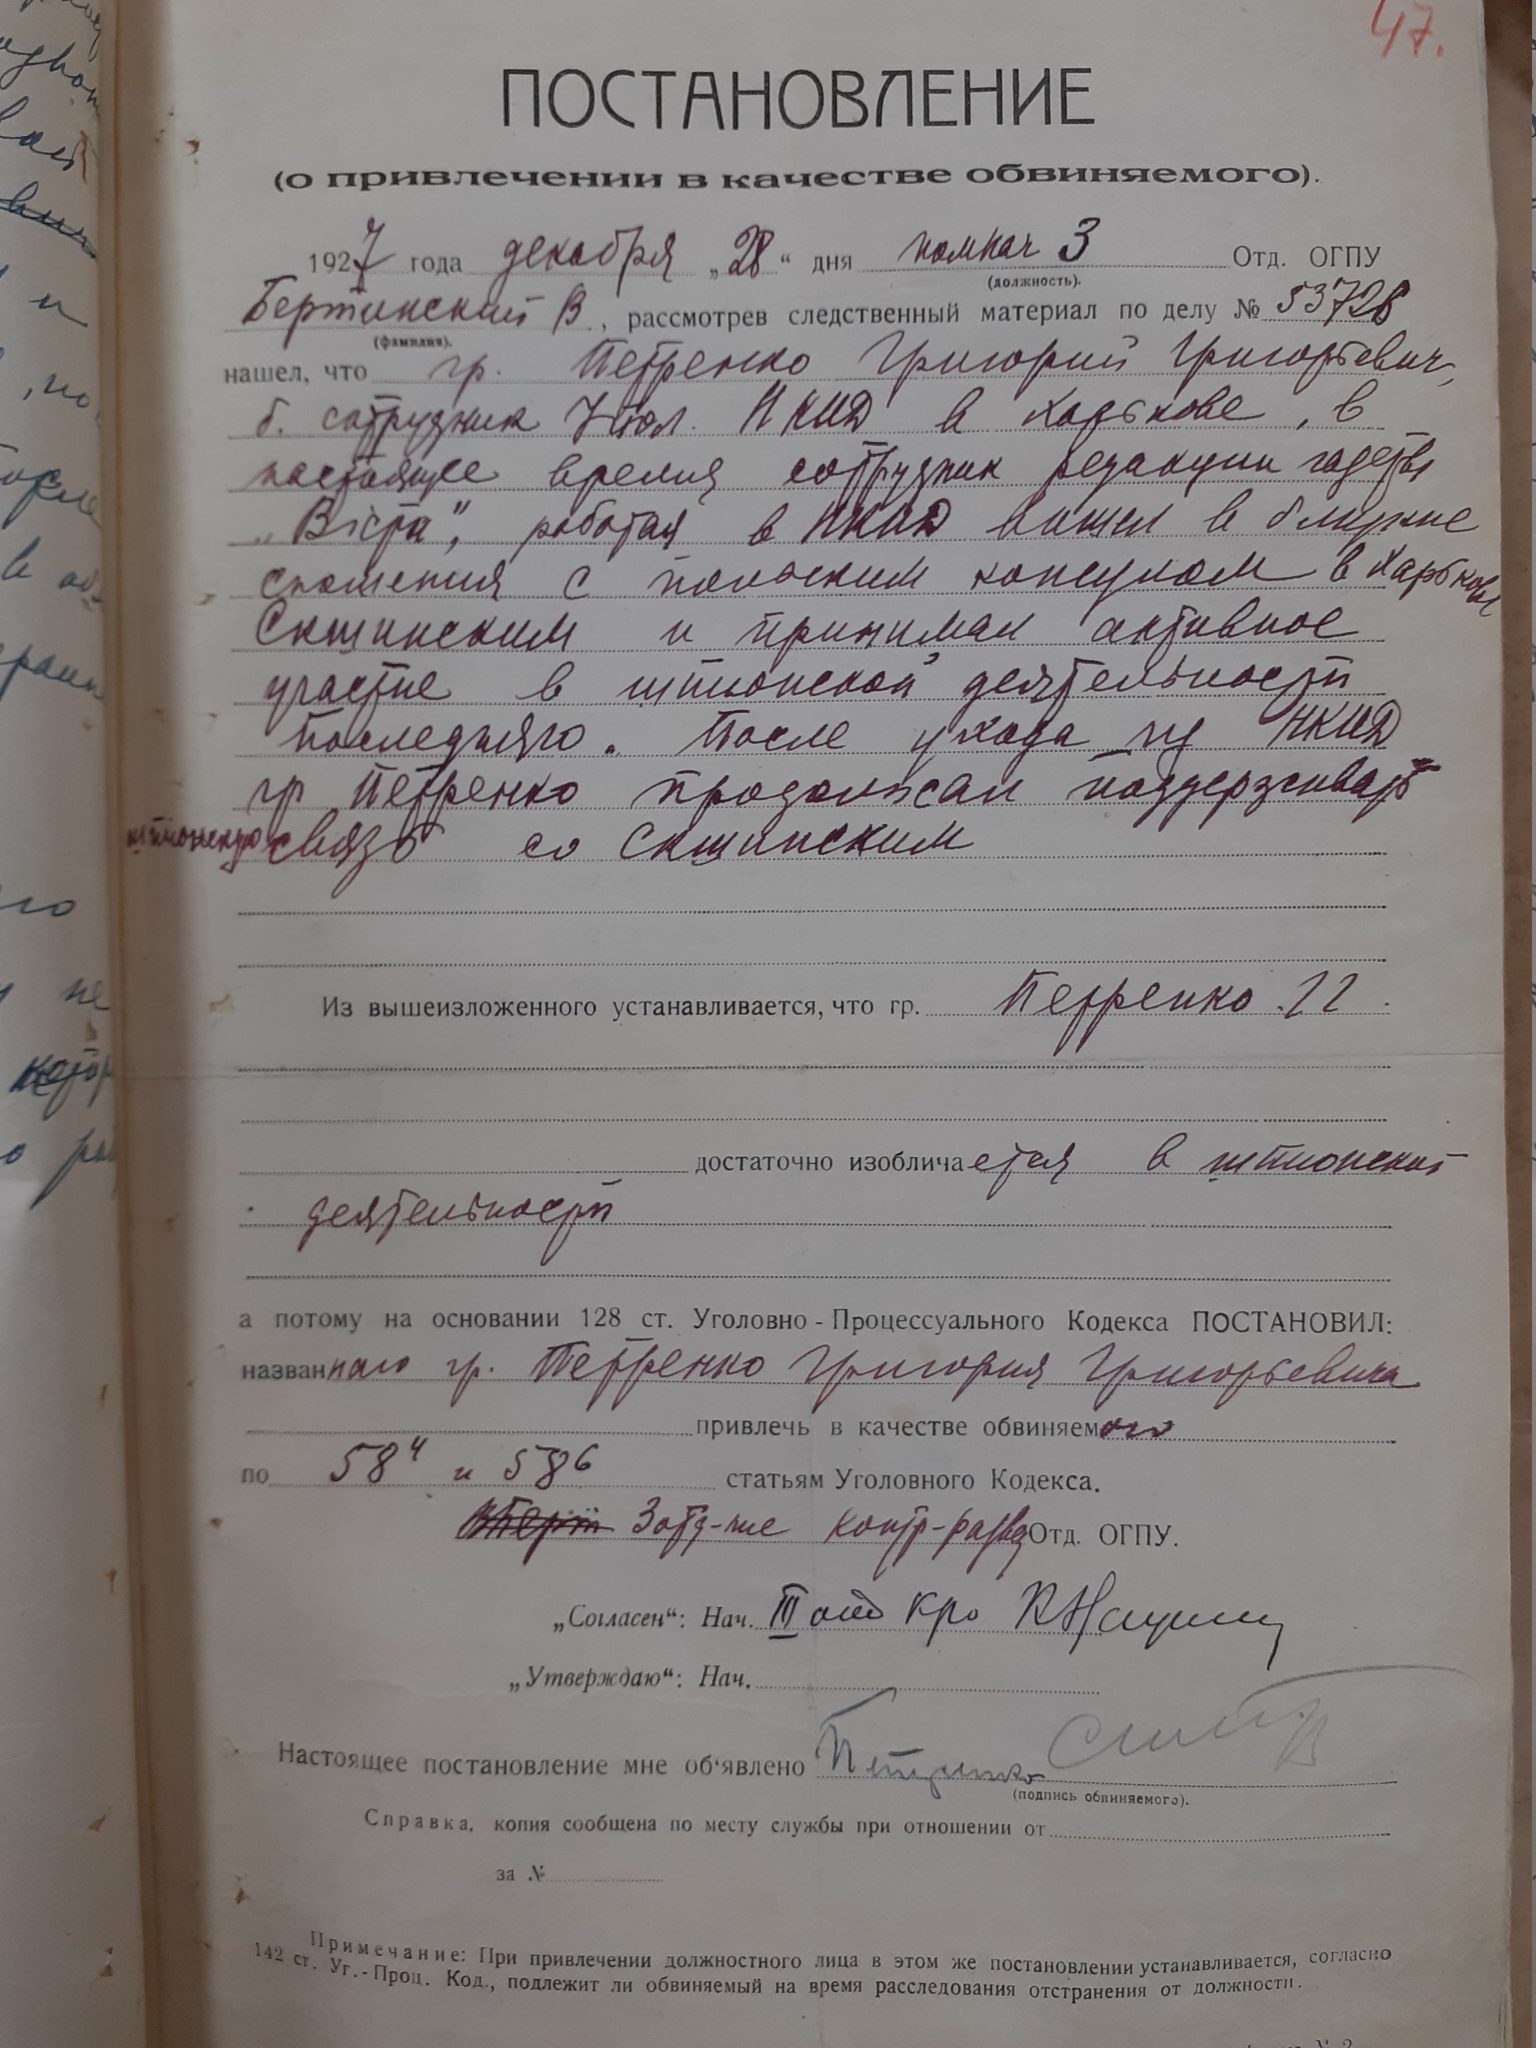 47.
ПОСТАНОВЛЕНИЕ
(о привлечении в качестве обвиняемого).
1927 года декабря „28“ дня помнач 3 Отд. ОГПУ
(должность).
Бертинский В, рассмотрев следственный материал по делу № 53728
(фамилия).
нашел, что гр. Петренко Григорий Григорьевич,
б. сотрудник Упол. НКИД в Харькове, в
настоящее время сотрудник редакции газеты
„Вістi", работая в НКИД вошел в близкие
сношения с польским консулом в Харькове
Скшинским и принимал активное
участие в шпионской деятельности
последняго. После ухода из НКИД
гр Петренко продолжал поддерживать
шпионскую связь со Скшинским
Из вышеизложенного устанавливается, что гр. Петренко ГГ
достаточно изобличается в шпионской
деятельности
а потому на основании 128 ст. Уголовно-Процессуального Кодекса ПОСТАНОВИЛ:
названнаго гр. Петренко Григория Григорьевича
привлечь в качестве обвиняемого
по 58⁴ и 58⁶ статьям Уголовного Кодекса.
3 отд-ние контр-развед Отд. ОГПУ.
„Согласен“: Нач. III отд Кро
„Утверждаю“: Нач.
Настоящее постановление мне об‘явлено Петренко
(подпись обвиняемого).
Справка. копия сообщена по месту службы при отношении от
за №
Примечание: При привлечении должностного лица в этом же постановлении устанавливается, согласно
142 ст. Уг.-Проц. Код., подлежит ли обвиняемый на время расследования отстранения от должности.